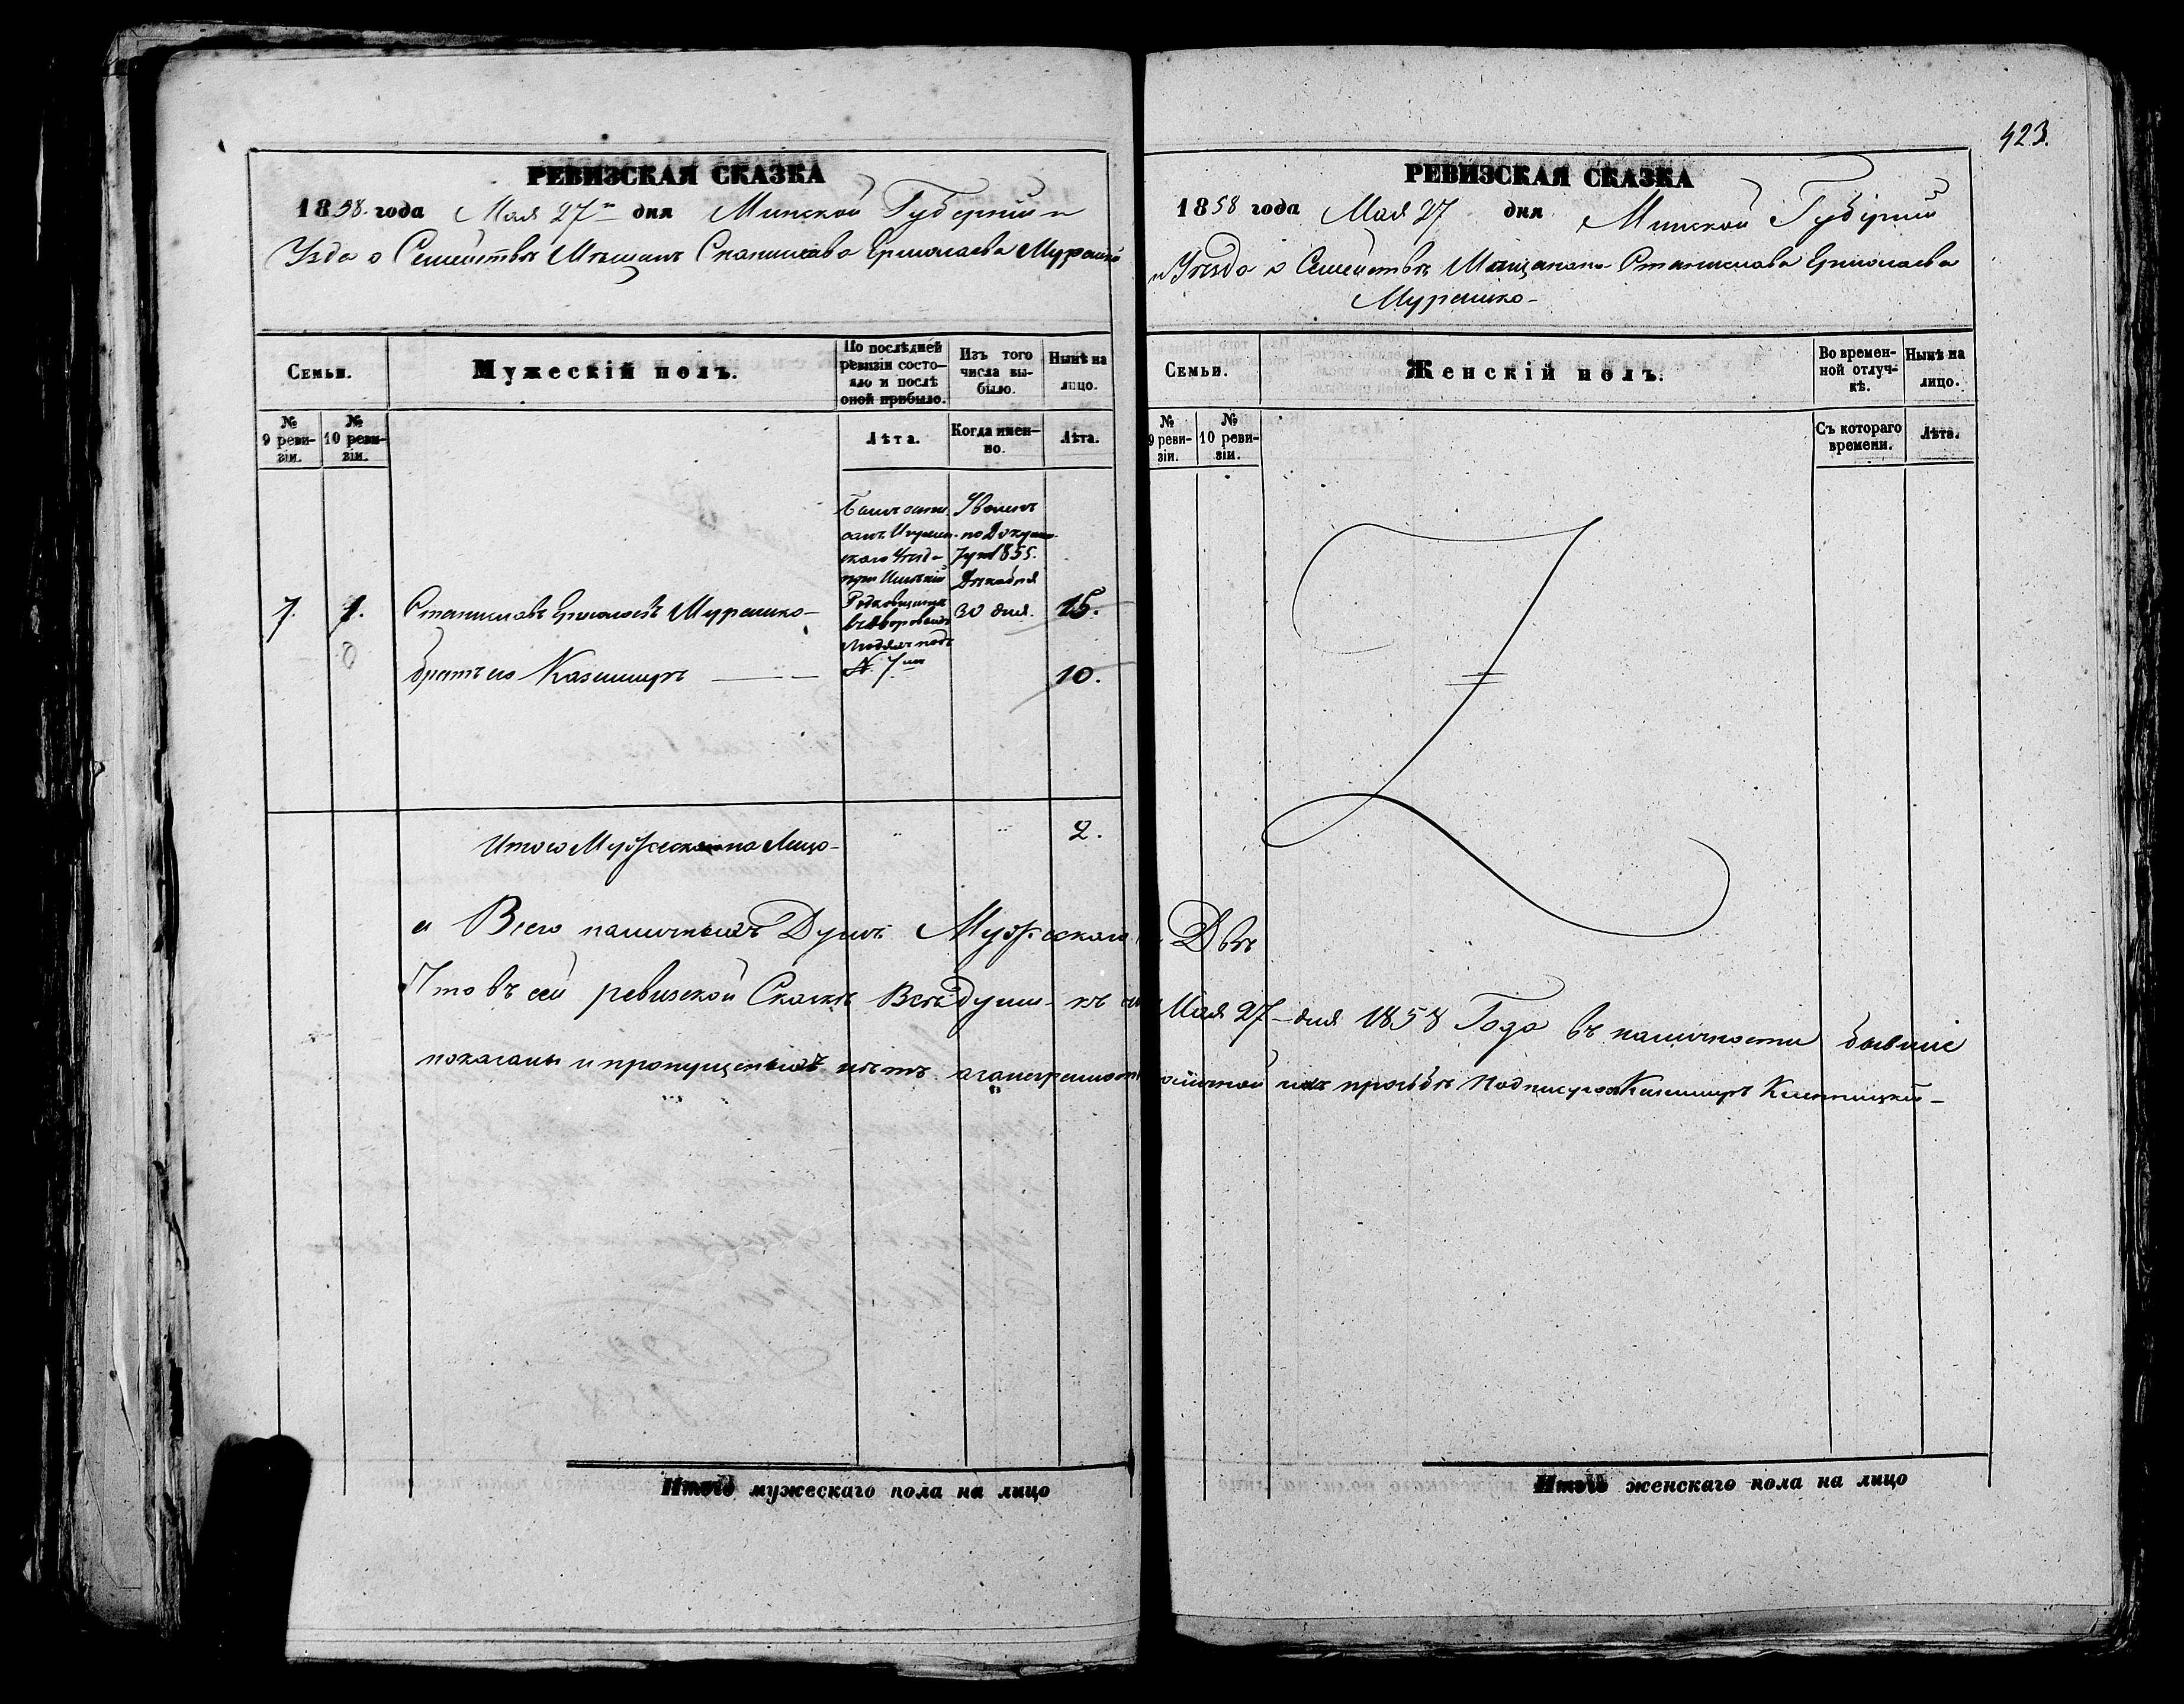 423.
РЕВИЗСКАЯ СКАЗКА
1858 года Мая 27го дня Минской Губерніи и
Уѣзда о Семействѣ Мѣщанъ Станислава Ермолаева Мурашко
Семьи.
Мужескій полъ.
По послѣдней ревизіи состояло и послѣ оной прибыло.
Изъ того числа выбыло.
Нынѣ на лицо.
№ 9 ревизіи.
№ 10 ревизіи.
Лѣта.
Когда именно.
Лѣта.
Былъ запи-
санъ Игумен-
скаго Уѣзда
при Имѣніи
въ дворовыхъ
людяхъ подъ
№ 7мъ
Уволенъ
по Докумен-
ту 1855.
Декабря
30 дня.
7. 1. Станиславъ Ермолаевъ Мурашко 15.
братъ его Казимиръ 10.
Итого Мужеска на Лицо 2.
а Всего наличныхъ Душъ Мужескаго Двѣ
Что въ сей ревизской Сказкѣ Всѣ души къ Мая 27 дня 1858 Года въ наличности бывшіе
показаны и пропущенныхъ нѣтъ а за неграмот личной ихъ прозьбѣ Казимиръ
Итого мужескаго пола на лицо
РЕВИЗСКАЯ СКАЗКА
1858 года Мая 27 дня Минской Губерніи
и Уѣзда о Семействѣ Мѣщанина Станислава Ермолаева
Мурашко
Семьи.
Женскій полъ.
Во временной отлучкѣ.
Нынѣ на лицо.
№ 9 ревизіи.
№ 10 ревизіи.
Съ котораго времени.
Лѣта.
Итого женскаго пола на лицо